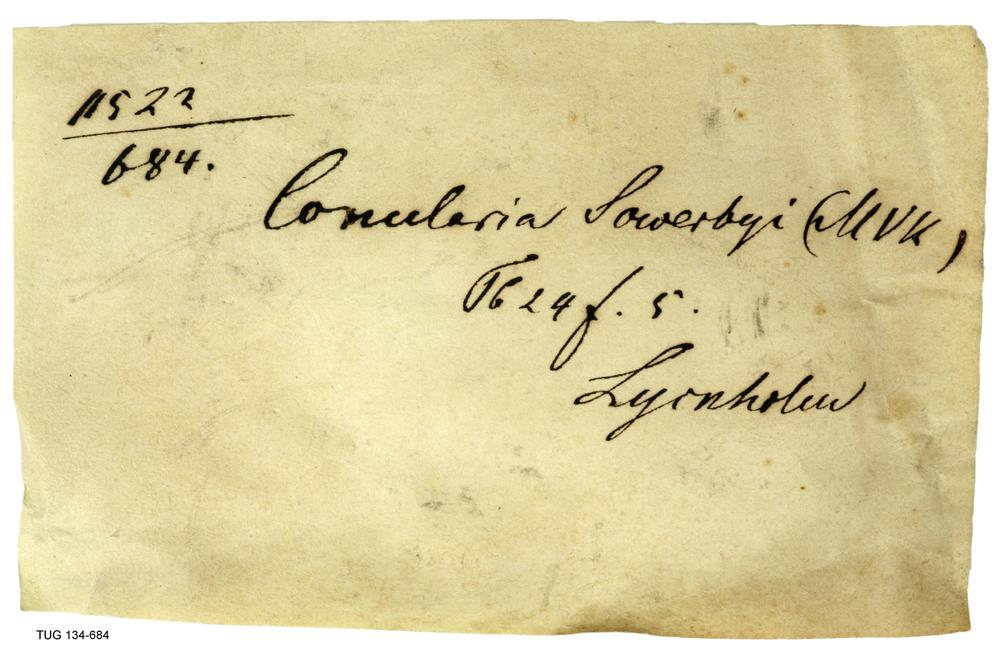 1522
684.
Conularia Sowerbyi (MVK)
Tb 24 f. 5.
Lyrnholm
TUG 134-684